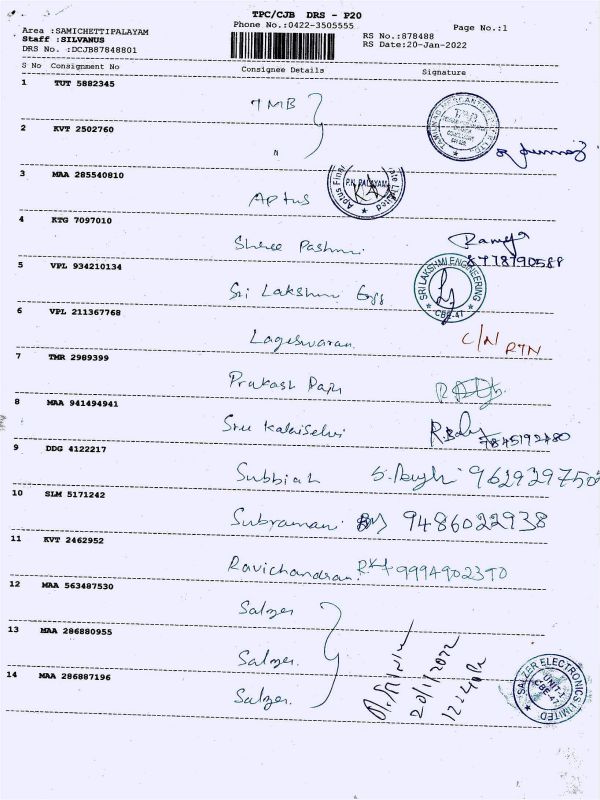 TPC/CJB DRS - P20
Phone No.:0422-3505555
Page No.:1
Area :SAMICHETTIPALAYAM
Staff :SILVANUS
DRS No. :DCJB87848801
RS No.:878488
RS Date:20-Jan-2022
S No Consignment No Consignee Details Signature
1 TUT 5882345
TMB
2 KVT 2502760
"
3 MAA 285540810
P.N. PALAYAM
Aptus
4 KTG 7097010
Shree Pashmi
8778790588
5 VPL 934210134
Sri Lakshmi Engg
SRI LAKSHMI ENGINEERING
CBE-47
6 VPL 211367768
Lageswaran C/N RTN
7 TMR 2989399
Prakash Raju
8 MAA 941494941
Sree Kalaiselvi
7845192480
9 DDG 4122217
Subbiah 9629397502
10 SLM 5171242
Subraman 9486022938
11 KVT 2462952
Ravichandran 9994902390
12 MAA 563487530
Salzer
13 MAA 286880955
Salzer
14 MAA 286887196
Salzer
20/1/2022
SALZER ELECTRONICS LIMITED
UNIT-1
CBE-47